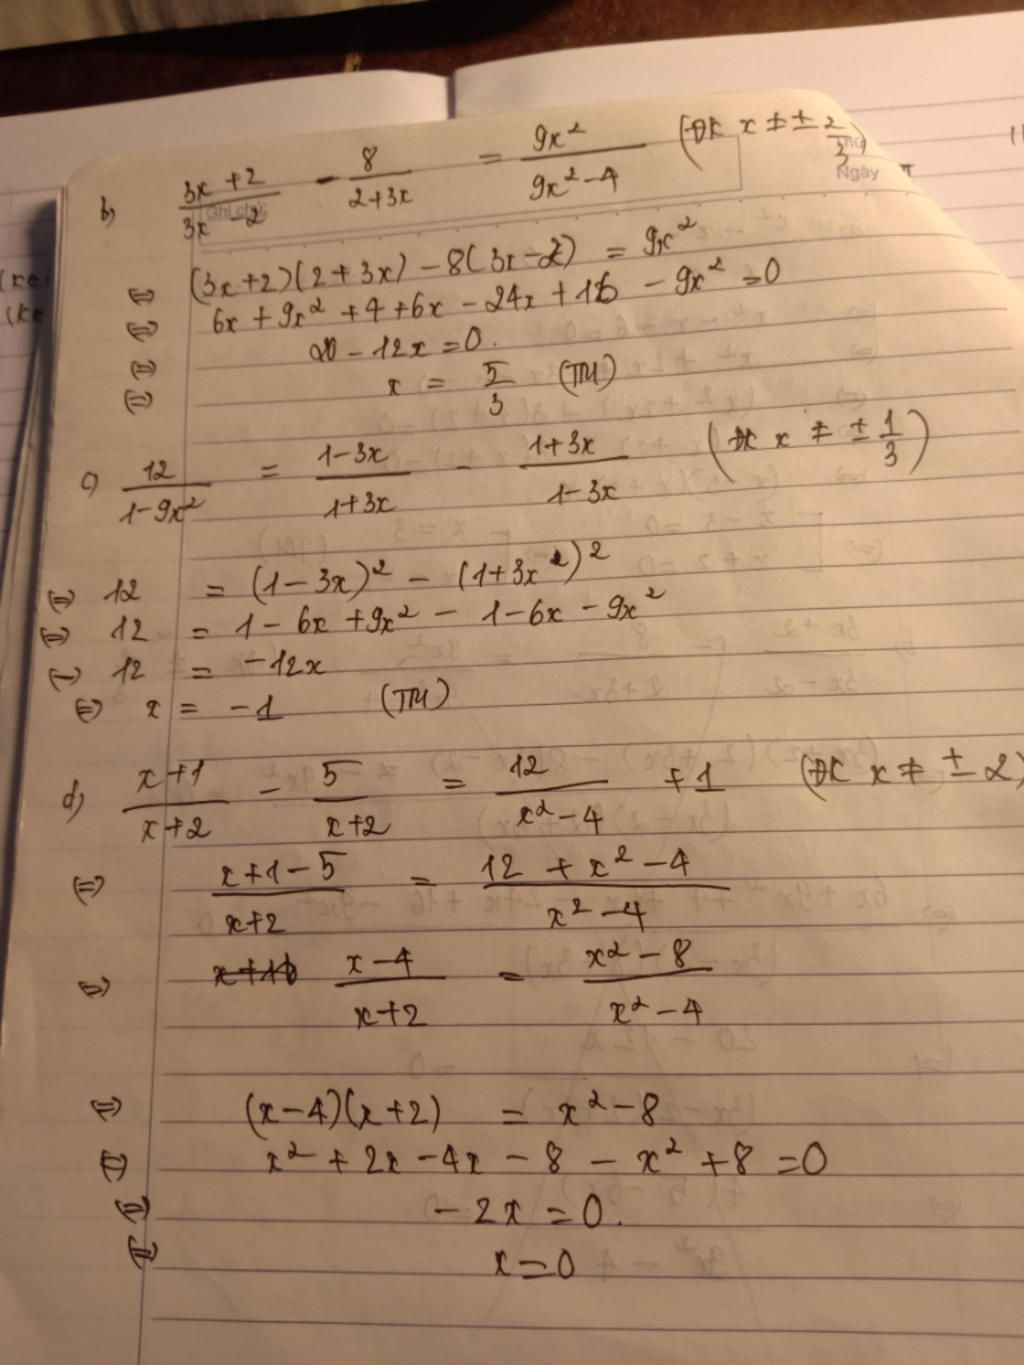 b) (3x+2)/(3x-2) - 8/(2+3x) = 9x²/(9x²-4) (ĐK x ≠ ± 2/3)
Ghi chú
Ngày
⇔ (3x+2)(2+3x) - 8(3x-2) = 9x²
⇔ 6x + 9x² + 4 + 6x - 24x + 16 - 9x² = 0
⇔ 20 - 12x = 0.
⇔ x = 5/3 (TM)
c) 12/(1-9x²) = (1-3x)/(1+3x) - (1+3x)/(1-3x) (ĐK x ≠ ± 1/3)
⇔ 12 = (1-3x)² - (1+3x)²
⇔ 12 = 1 - 6x + 9x² - 1 - 6x - 9x²
⇔ 12 = -12x
⇔ x = -1 (TM)
d) (x+1)/(x+2) - 5/(x+2) = 12/(x²-4) + 1 (ĐK x ≠ ± 2)
⇔ (x+1-5)/(x+2) = (12 + x² - 4)/(x²-4)
⇔ (x-4)/(x+2) = (x²-8)/(x²-4)
⇔ (x-4)(x+2) = x²-8
⇔ x² + 2x - 4x - 8 - x² + 8 = 0
⇔ -2x = 0.
⇔ x = 0